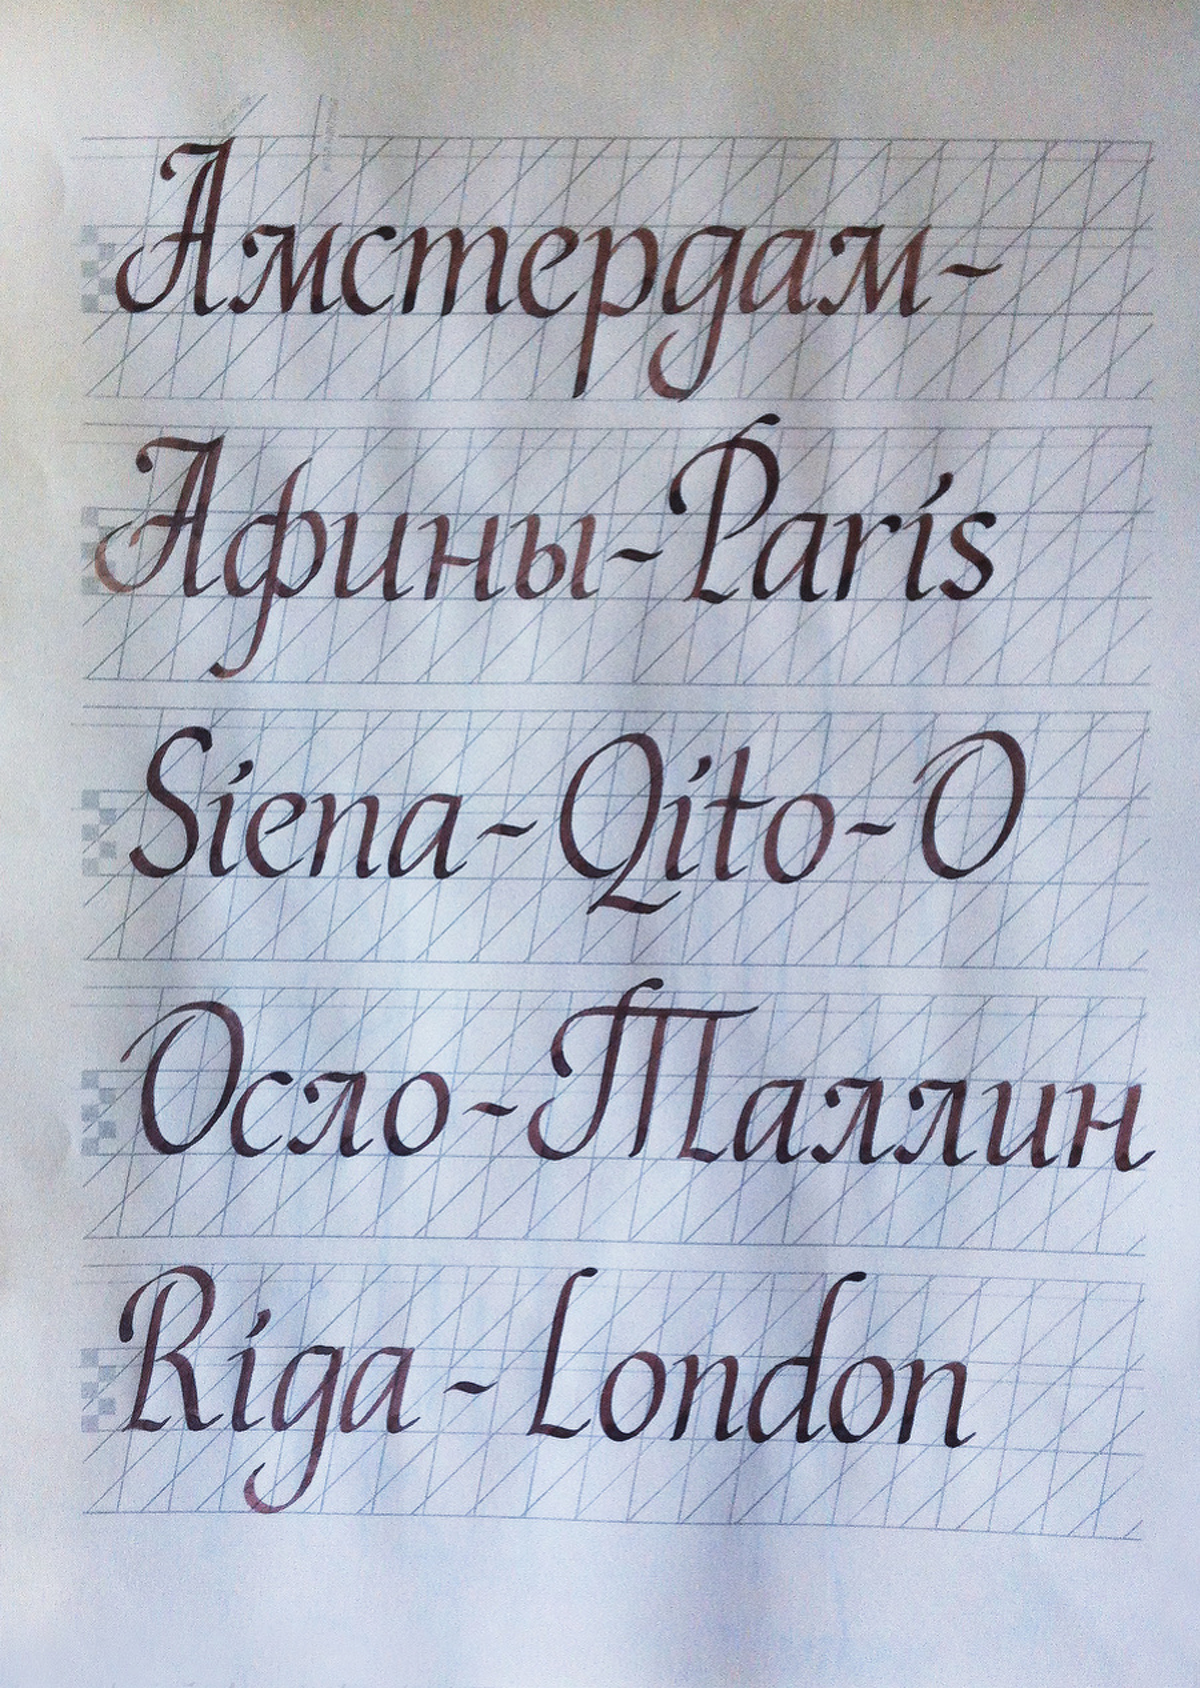 Амстердам-
Афины-Paris
Siena-Qito-O
Осло-Таллин
Riga-London